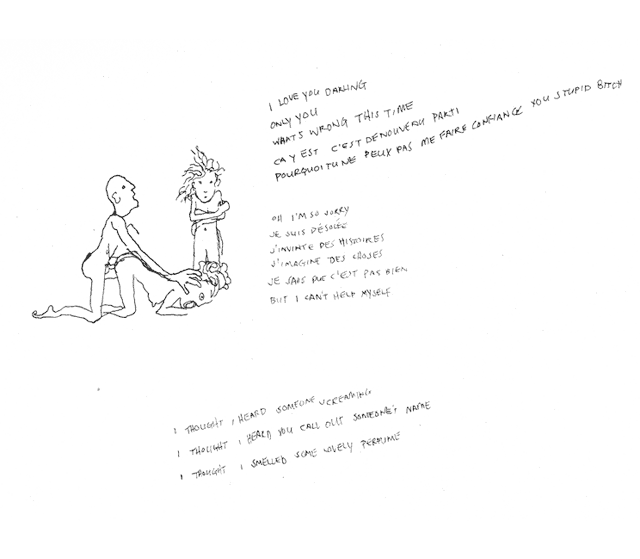 I LOVE YOU DARLING
ONLY YOU
WHATS WRONG THIS TIME
CA Y EST C'EST DÉNOUVEAU PARTI
POURQUOI TU NE PEUX PAS ME FAIRE CONFIANCE YOU STUPID BITCH
OH I'M SO SORRY
JE SUIS DÉSOLÉE
J'INVENTE DES HISTOIRES
J'IMAGINE DES CHOSES
JE SAIS QUE C'EST PAS BIEN
BUT I CAN'T HELP MYSELF
I THOUGHT I HEARD SOMEONE SCREAMING
I THOUGHT I HEARD YOU CALL OUT SOMEONE'S NAME
I THOUGHT I SMELLED SOME LOVELY PERFUME